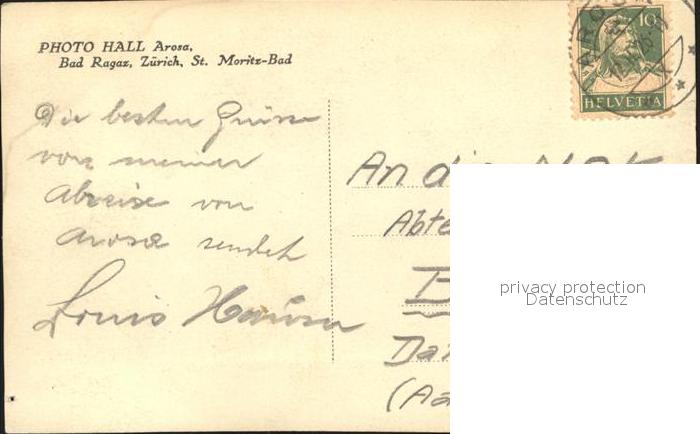 PHOTO HALL Arosa,
Bad Ragaz, Zürich, St. Moritz-Bad
10
HELVETIA
AROSA
Die besten Grüsse
von meiner
Abreise von
Arosa sendet
Louis
An die
Abte
B
(Aa
privacy protection
Datenschutz